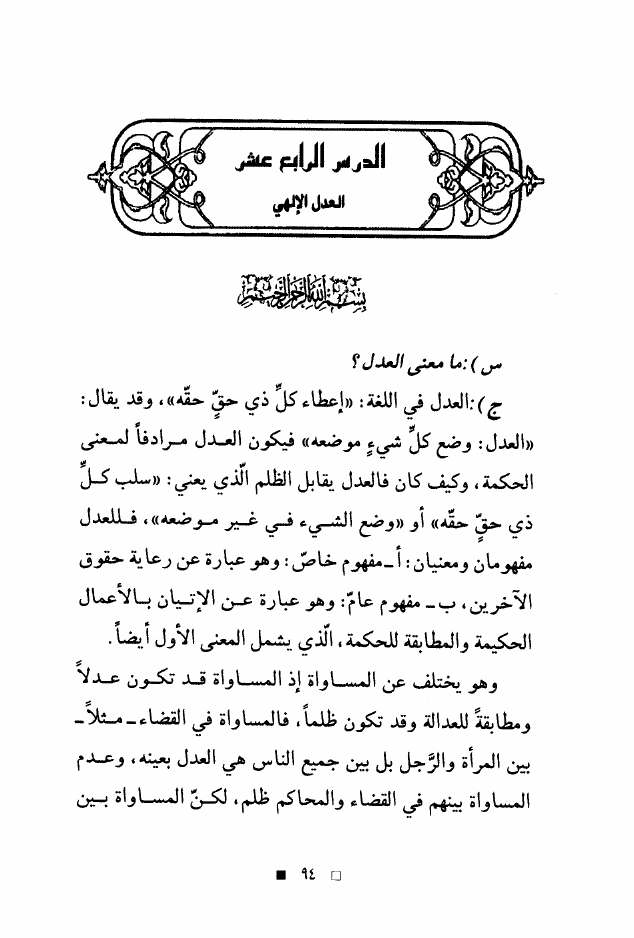 الدرس الرابع عشر
العدل الإلهي
بسم الله الرحمن الرحيم
س):ما معنى العدل؟
ج):العدل في اللغة: «إعطاء كلِّ ذي حقٍّ حقّه»، وقد يقال:
«العدل: وضع كلِّ شيءٍ موضعه» فيكون العـدل مـرادفاً لمـعنى
الحكمة، وكيف كان فالعدل يقابل الظلم الّذي يعني: «سلب كـلِّ
ذي حقٍّ حقّه» أو «وضع الشـيء فـي غـير مـوضعه»، فـللعدل
مفهومان ومعنيان: أ ـ مفهوم خاصّ: وهو عبارة عن رعاية حقوق
الآخرين، ب ـ مفهوم عامّ: وهو عبارة عـن الإتـيان بـالأعمال
الحكيمة والمطابقة للحكمة، الّذي يشمل المعنى الأول أيضاً.
وهو يختلف عن المسـاواة إذ المسـاواة قـد تكـون عـدلاً
ومطابقةً للعدالة وقد تكون ظلماً، فالمساواة في القضاء ـ مـثلاً ـ
بين المرأة والرَّجل بل بين جميع الناس هي العدل بعينه، وعـدم
المساواة بينهم في القضاء والمحاكم ظلم، لكـنّ المسـاواة بـين
□ ٩٤ ■